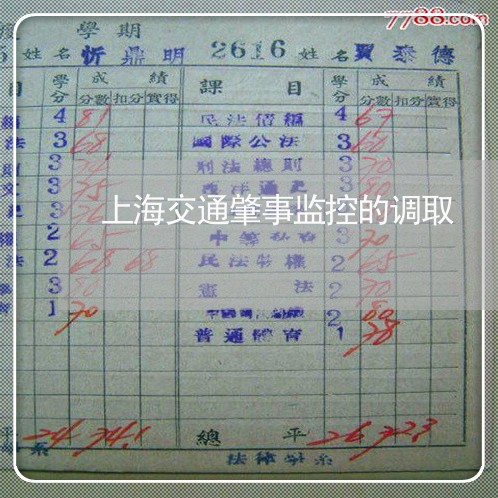 7788.com
學期
姓名 忻鼎明 2616 姓名 賈泰德
目 學分 成績 課目 學分 成績
分數 扣分 實得 分數 扣分 實得
4 81 民法債編 4 67
法 3 68 國際公法 3 60
3 刑法總則 3 70
3 75 西洋通史 3 80
上海交通肇事监控的调取
2 65 3 70
法 2 68 68 民法物權 2 65
3 80 憲法 2 70
1 70 2 80
普通體育 1 78
平 24 74.1 總平 26 72.3
系 法律學系